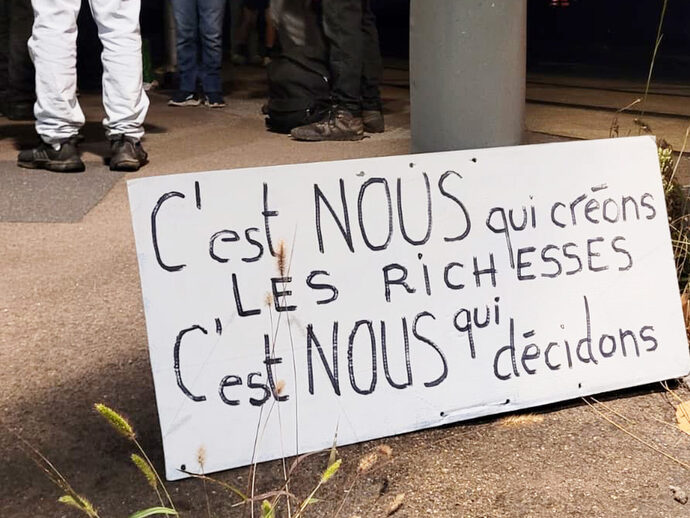 C'est NOUS qui créons
LES RICHESSES
C'est NOUS qui décidons